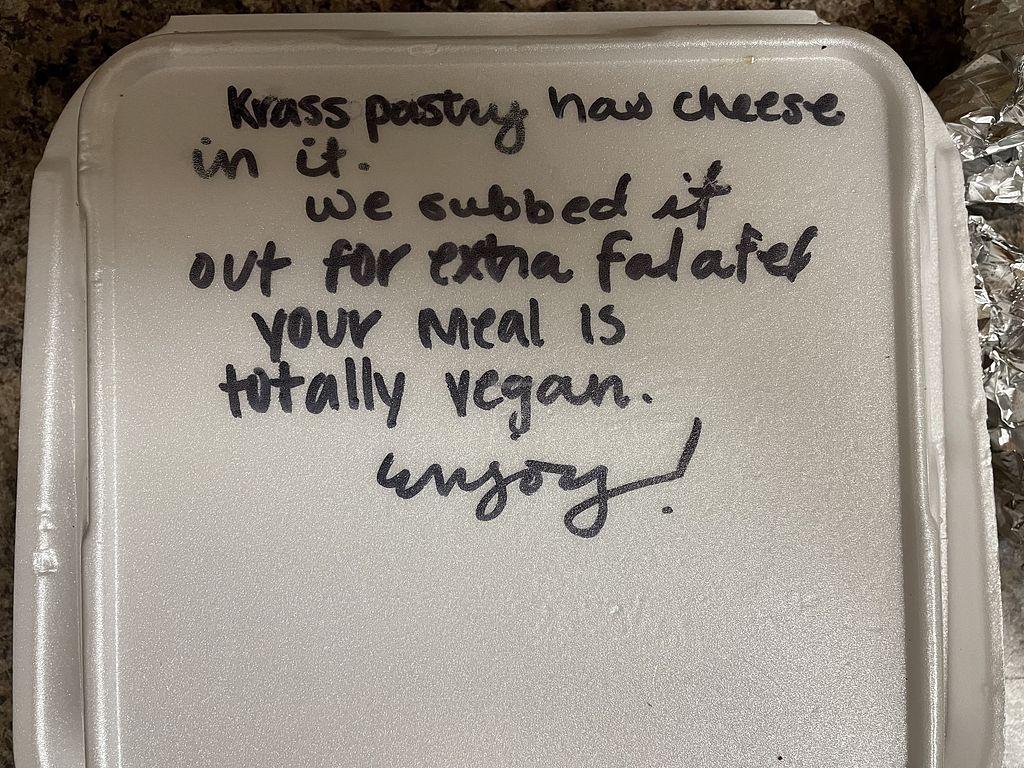 Krass pastry has cheese
in it.
we subbed it
out for extra falafel
your meal is
totally vegan.
enjoy!